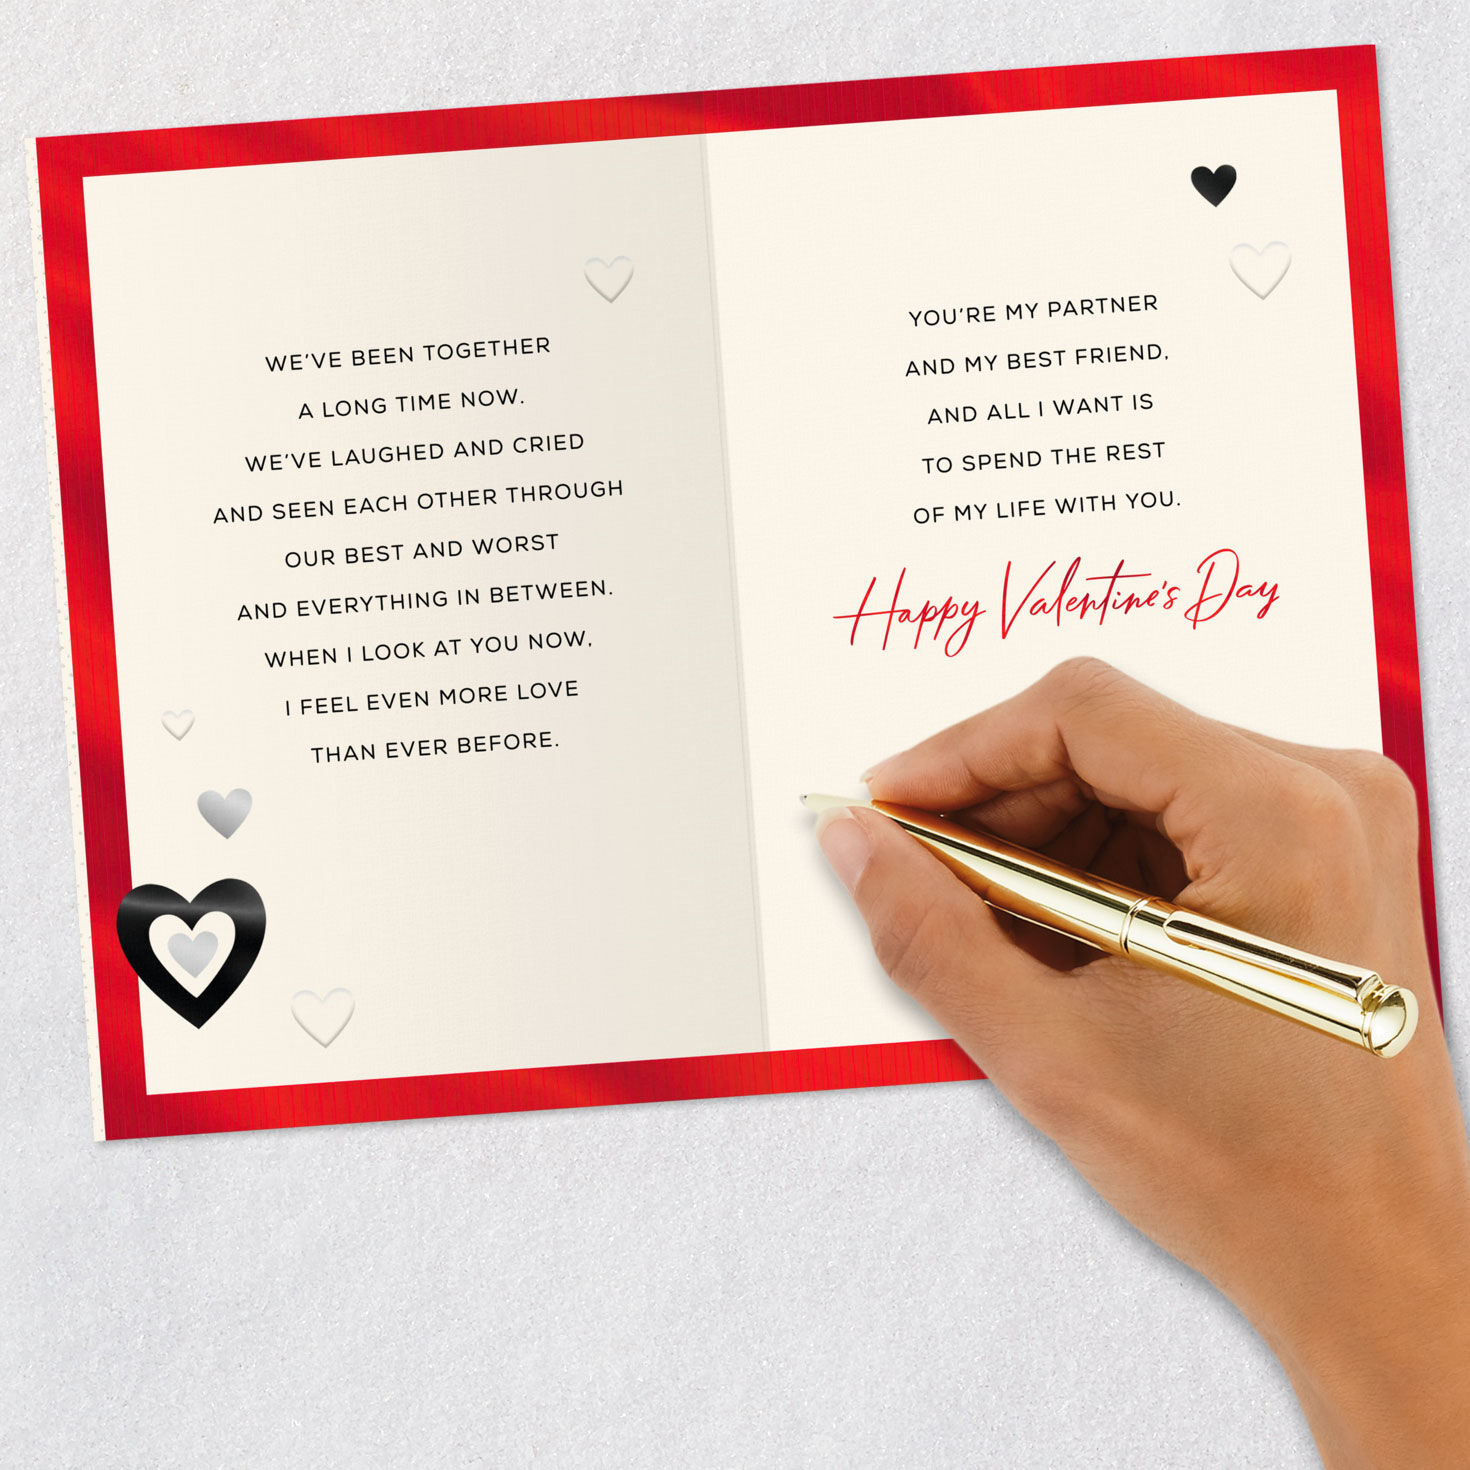 WE'VE BEEN TOGETHER
A LONG TIME NOW.
WE'VE LAUGHED AND CRIED
AND SEEN EACH OTHER THROUGH
OUR BEST AND WORST
AND EVERYTHING IN BETWEEN.
WHEN I LOOK AT YOU NOW,
I FEEL EVEN MORE LOVE
THAN EVER BEFORE.
YOU'RE MY PARTNER
AND MY BEST FRIEND,
AND ALL I WANT IS
TO SPEND THE REST
OF MY LIFE WITH YOU.
Happy Valentine's Day